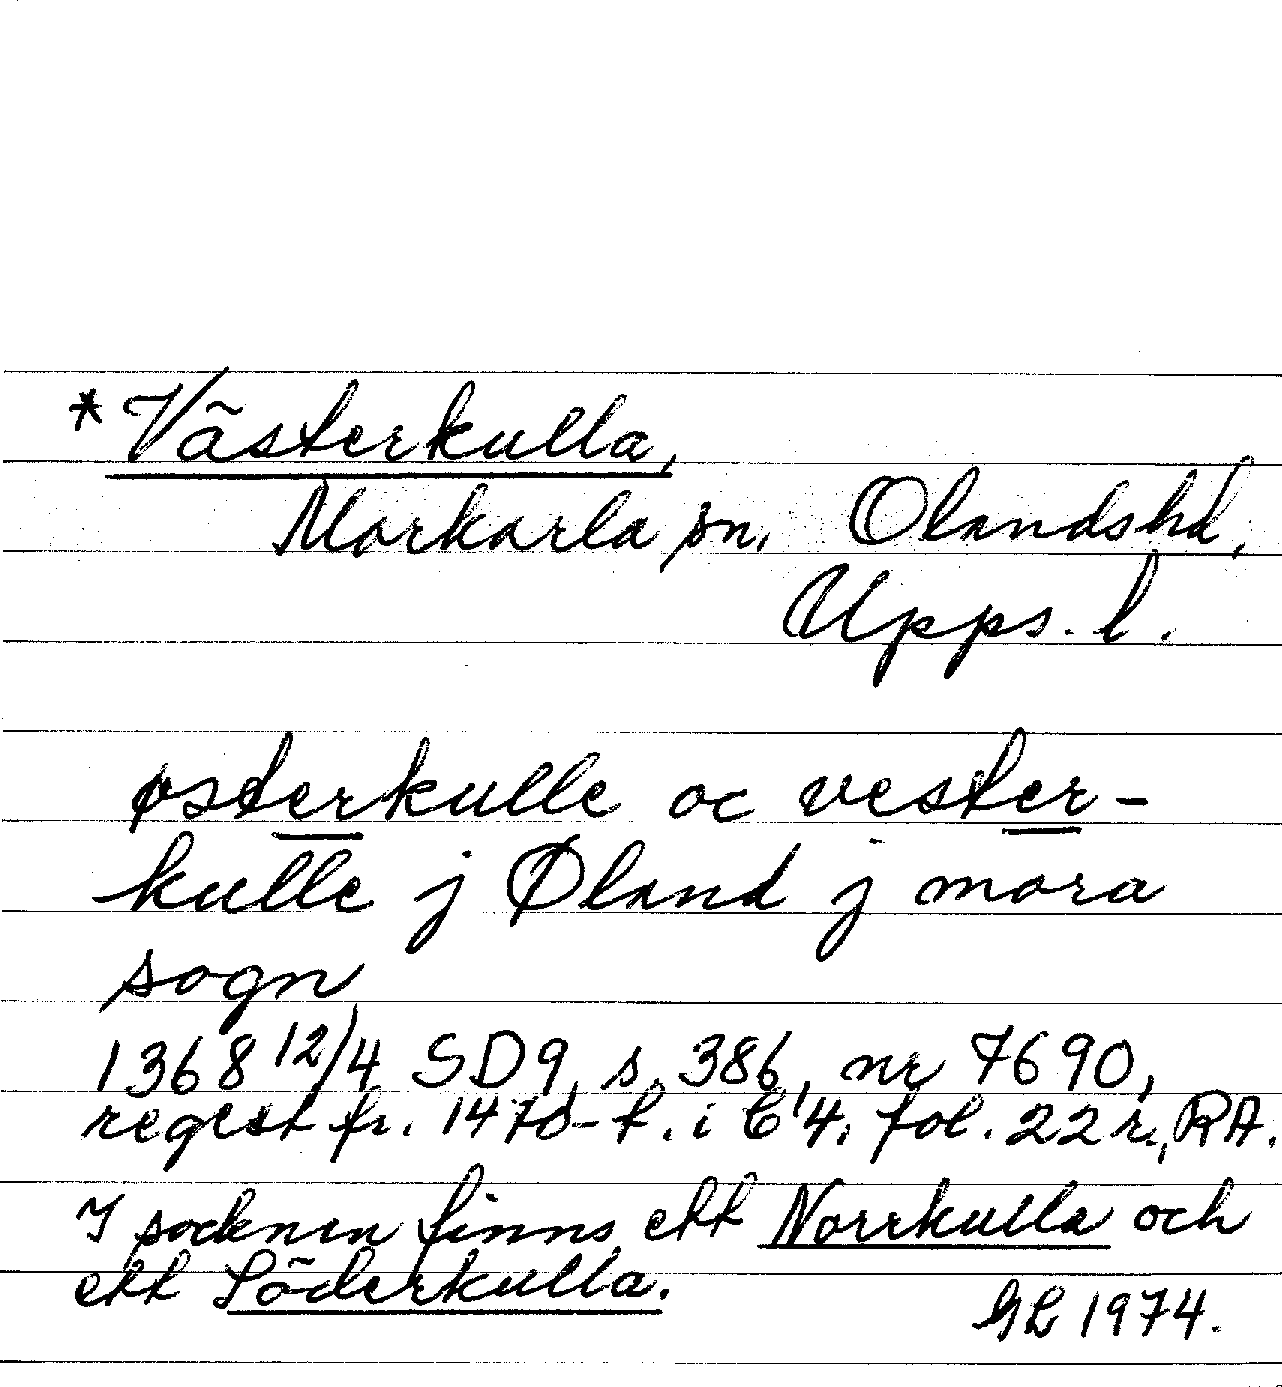 *Västerkulla,
Morkarla sn. Olandshd,
Upps. l.
østerkulle oc vester-
kulle j Øland j mora
sogn
1368 12/4 SD9, s. 386, nr 7690,
regest fr. 1470-t. i C 14, fol. 22 r., RA.
I socknen finns ett Norrkulla och
ett Söderkulla.
GL 1974.